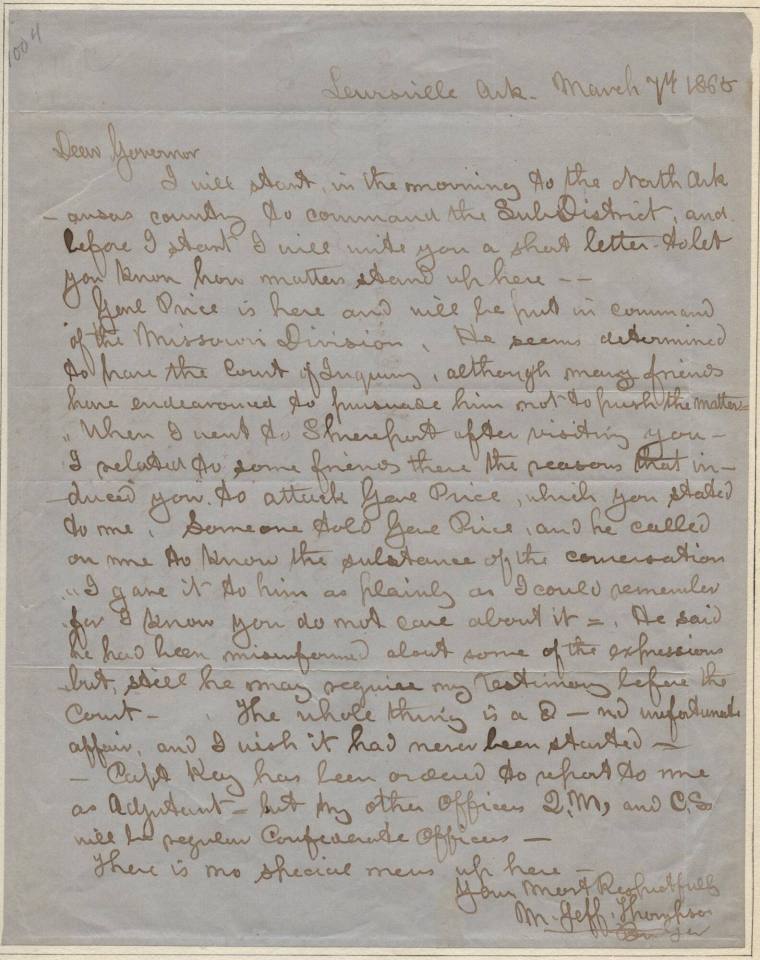 1004
Lewisville Ark. March 7th 1865
Dear Governor
I will start, in the morning to the North Ark
-ansas country to command the Sub District, and
before I start I will write you a short letter to let
you know how matters stand up here --
Genl Price is here and will be put in command
of the Missouri Division. He seems determined
to have the Court of Inquiry, although many friends
have endeavored to pursuade him not to push the matter-
"When I went to Shreveport after visiting you -
I related to some friends there the reasons that in-
duced you to attack Genl Price, which you stated
to me. Someone told Genl Price, and he called
on me to know the substance of the conversation
"I gave it to him as plainly as I could remember
for I know you do not care about it =. He said
he had been misinformed about some of the expressions
but, still he may require my testimony before the
Court - The whole thing is a d - nd unfortunate
affair, and I wish it had never been started -
- Capt Kay has been ordered to report to me
as Adjutant - but my other officers Q.M, and C.S
will be regular Confederate Officers -
There is no special news up here -
Your Most Respectfully
M. Jeff. Thompson